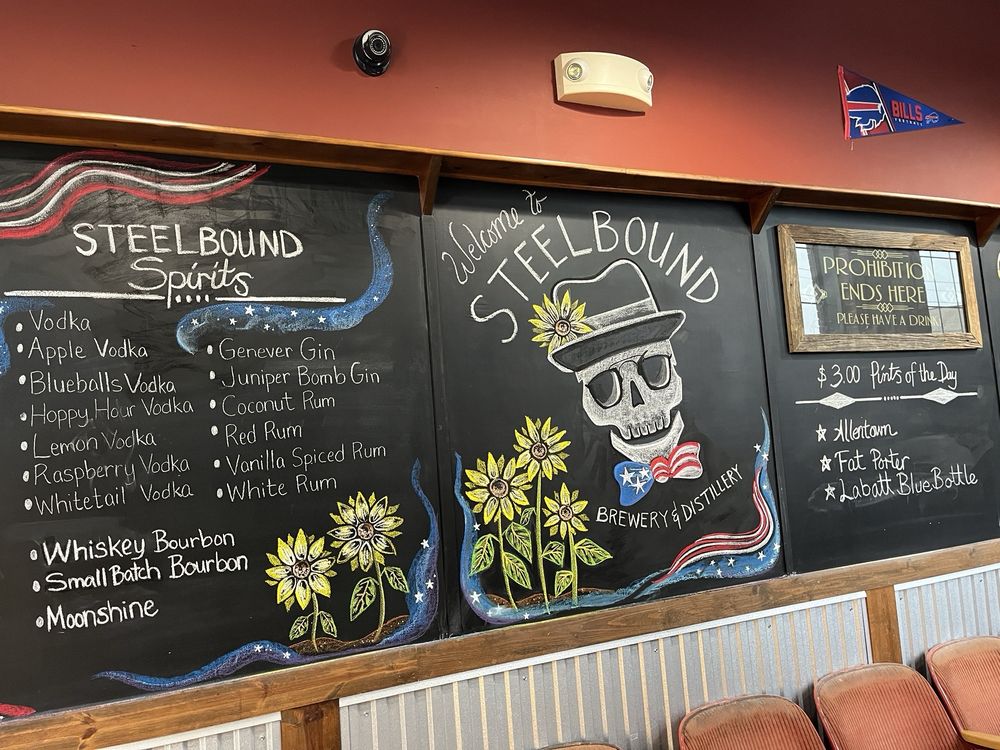 BILLS
FOOTBALL
STEELBOUND
Spirits
• Vodka
• Apple Vodka
• Blueballs Vodka
• Hoppy Hour Vodka
• Lemon Vodka
• Raspberry Vodka
• Whitetail Vodka
• Genever Gin
• Juniper Bomb Gin
• Coconut Rum
• Red Rum
• Vanilla Spiced Rum
• White Rum
• Whiskey Bourbon
• Small Batch Bourbon
• Moonshine
Welcome to
STEELBOUND
BREWERY & DISTILLERY
PROHIBITION
ENDS HERE
PLEASE HAVE A DRINK
$3.00 Pints of the Day
☆ Allentown
☆ Fat Porter
☆ Labatt Blue Bottle